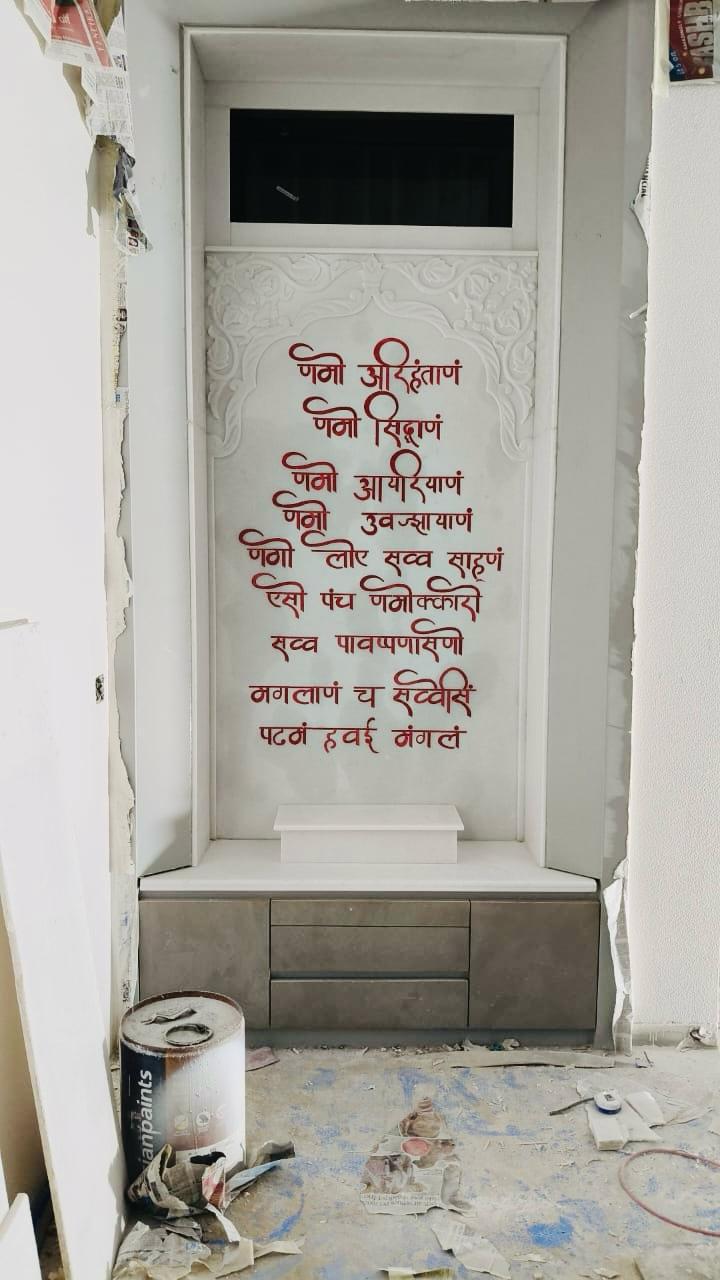 णमो अरिहंताणं
णमो सिद्धाणं
णमो आयरियाणं
णमो उवज्झायाणं
णमो लोए सव्व साहूणं
एसो पंच णमोक्कारो
सव्व पावप्पणासणो
मगलाणं च सव्वेसिं
पढमं हवई मंगलं
anpaints